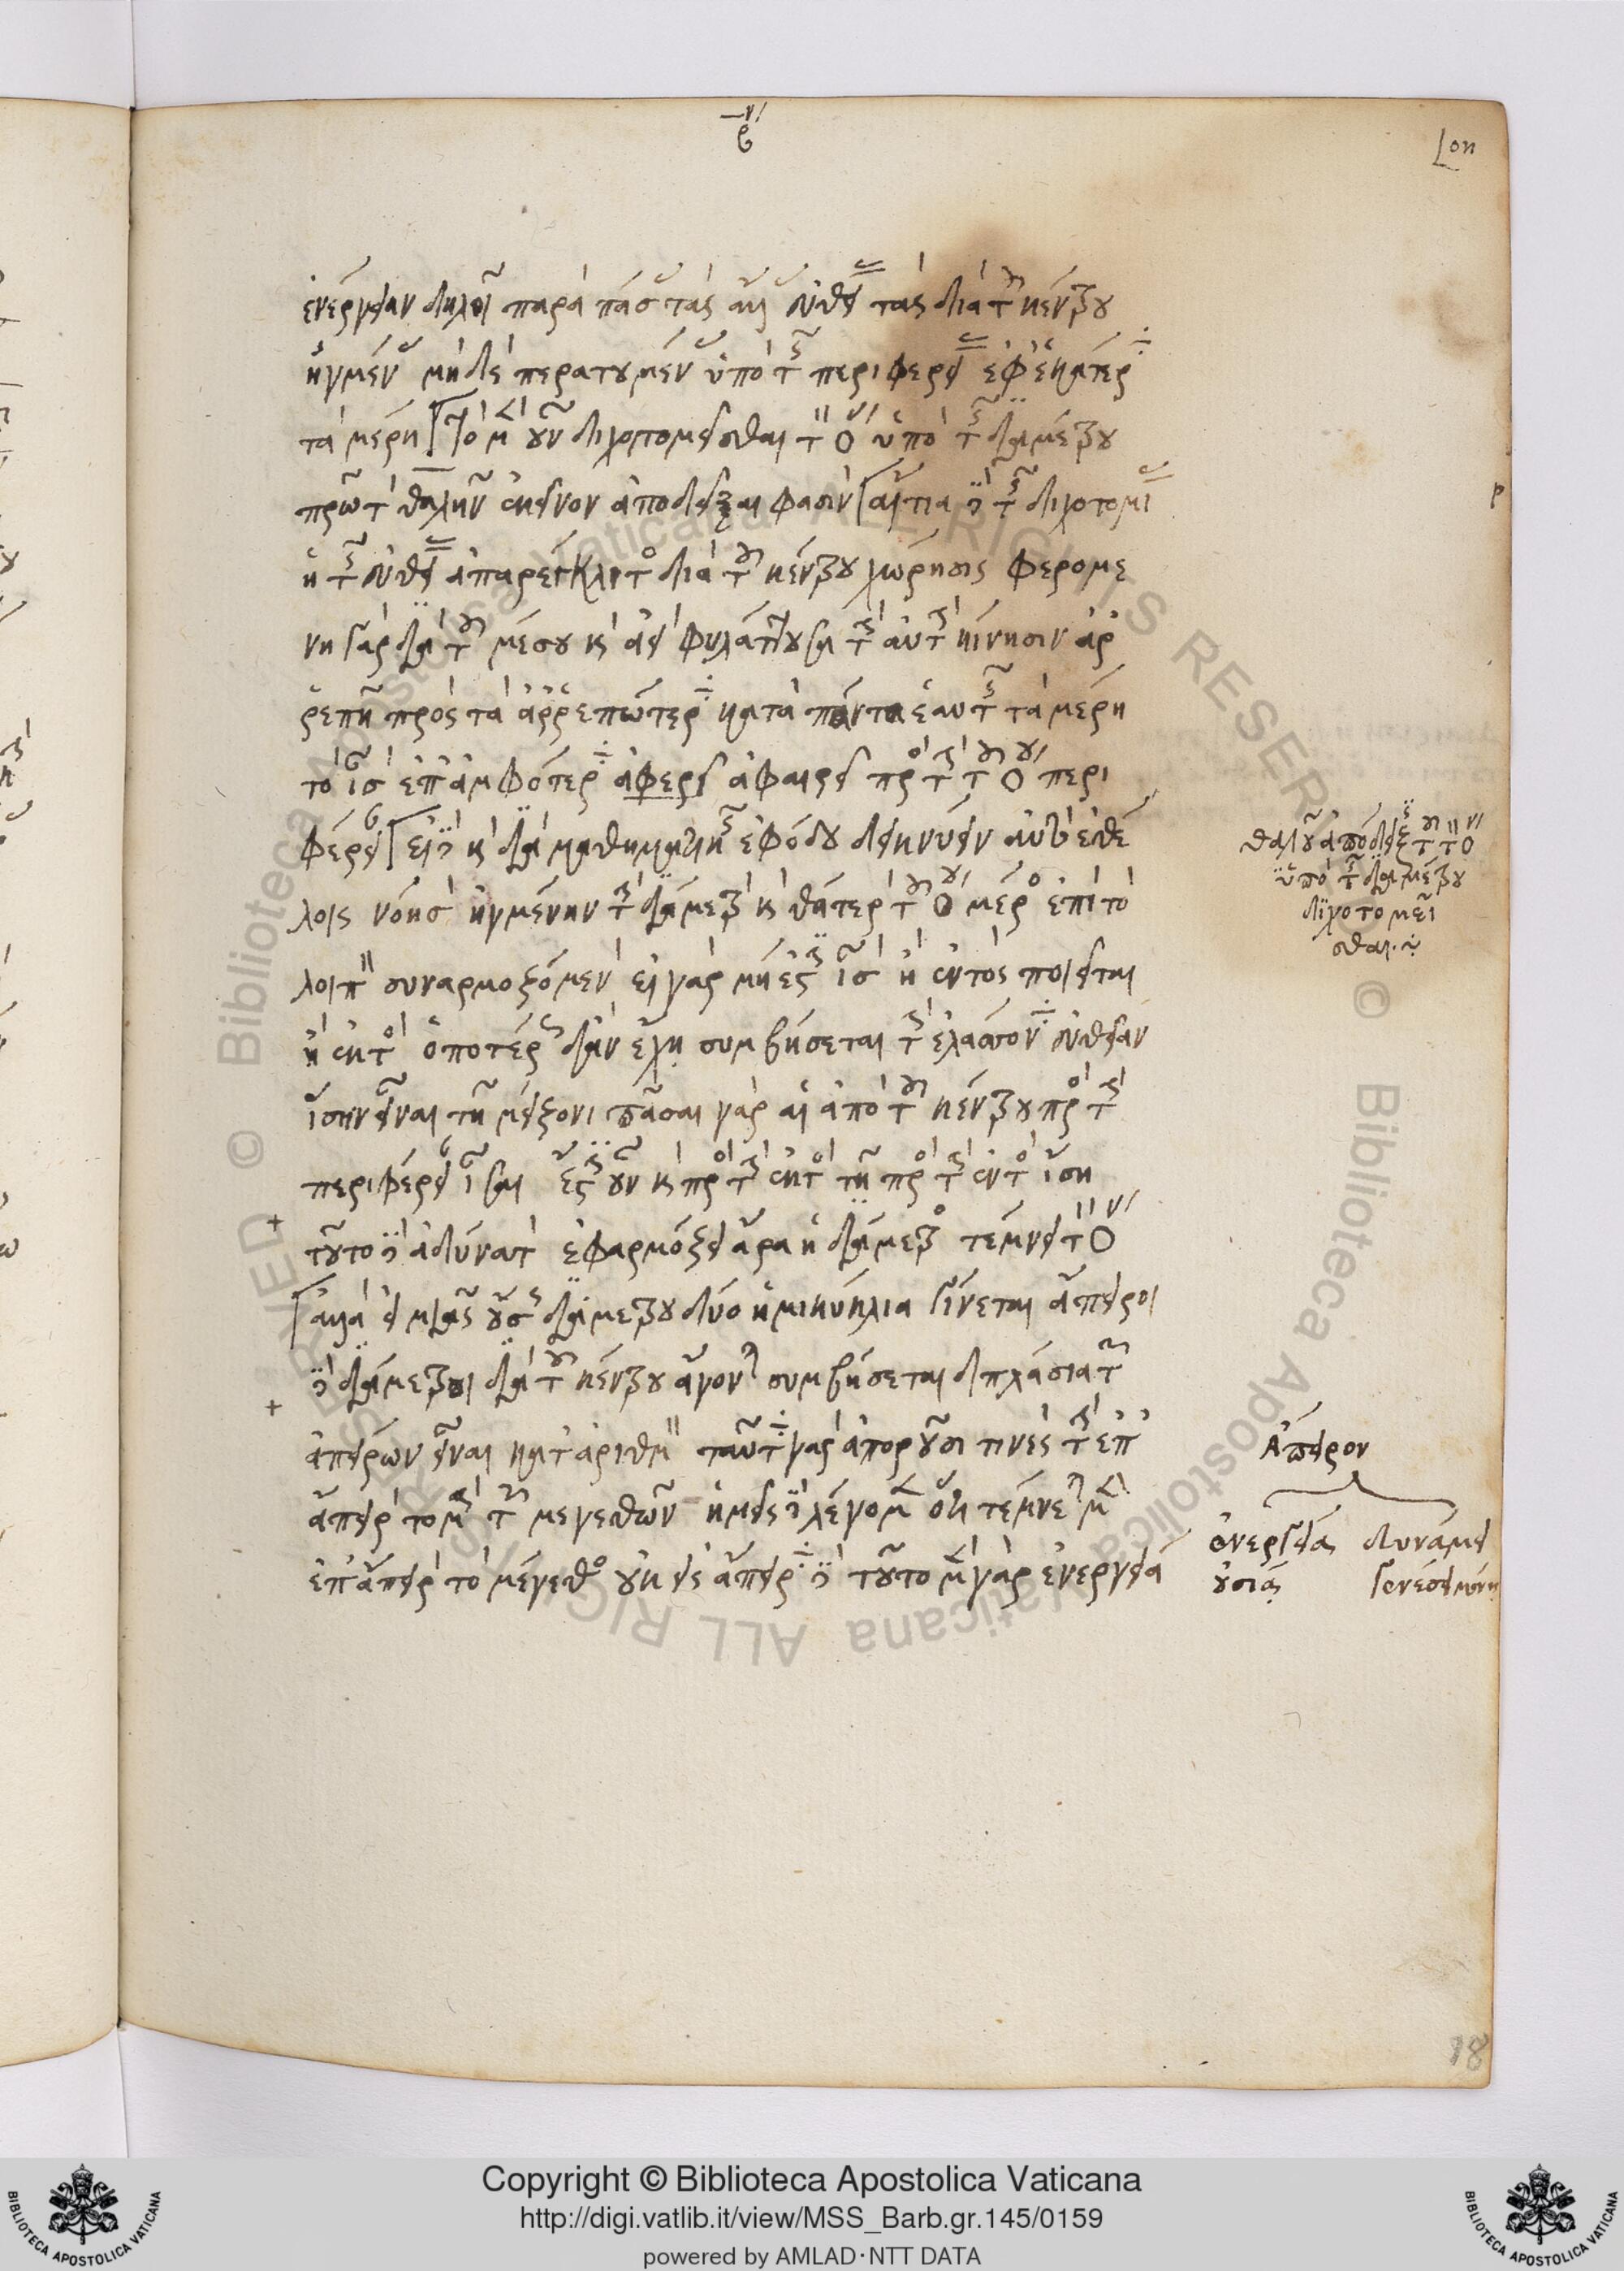 Lon
ἐνέργειαν δηλοῖ παρὰ πάσας τὰς ἄλλας εὐθείας τὰς διὰ τοῦ κέντρου
ἠγμένας μηδὲ περατουμένας ὑπὸ τῆς περιφερείας ἐφ' ἑκάτερα
τὰ μέρη τὸ μὲν οὖν διχοτομεῖσθαι τὸν Ο ὑπὸ τῆς διαμέτρου
πρῶτον θαλῆν ἐκεῖνον ἀποδεῖξαι φασὶν αἰτία δὲ τῆς διχοτομίας
ἡ τῆς εὐθείας ἀπαρέγκλιτος διὰ τοῦ κέντρου χώρησις φερομέ
νη γὰρ διὰ τοῦ μέσου καὶ ἀεὶ φυλάττουσα τὴν αὐτὴν κίνησιν ἀρ
ρεπῆ πρὸς τὰ ἀρρεπώτερα κατὰ πάντα ἑαυτῆς τὰ μέρη
τὸ ἴσον ἐπ' ἀμφότερα ἀφαιρεῖ πρὸς τὴν τοῦ Ο περι
φέρειαν εἰ δὲ καὶ διὰ μαθηματικῆς ἐφόδου δεικνύειν αὐτὸ ἐθέ
λοις νόησον ἠγμένην τὴν διάμετρον καὶ θάτερον τοῦ Ο μέρος ἐπὶ τὸ
λοιπὸν συναρμοζόμενον εἰ γὰρ μή ἐστιν ἴσον ἢ ἐντὸς πεσεῖται
ἢ ἐκτὸς ὁποτέρως δ' ἂν ἔχῃ συμβήσεται τὴν ἐλάσσονα εὐθεῖαν
ἴσην εἶναι τῇ μείζονι πᾶσαι γὰρ αἱ ἀπὸ τοῦ κέντρου πρὸς τὴν
περιφέρειαν ἴσαι ἔσται οὖν καὶ πρὸς τὴν ἐκτὸς τῇ πρὸς τὴν ἐντὸς ἴση
τοῦτο δὲ ἀδύνατον ἐφαρμόζει ἄρα ἡ διάμετρος τέμνει τὸν Ο
ἀλλὰ εἰ μιᾶς οὔσης διαμέτρου δύο ἡμικύκλια γίνεται ἄπειροι
δὲ διάμετροι διὰ τοῦ κέντρου ἄγονται συμβήσεται διπλάσια τῶν
ἀπείρων εἶναι κατ' ἀριθμὸν ταῦτα γὰρ ἀποροῦσι τινὲς τὴν ἐπ'
ἄπειρον τομὴν τῶν μεγεθῶν ἡμεῖς δὲ λέγομεν ὅτι τέμνεται μὲν
ἐπ' ἄπειρον τὸ μέγεθος οὐκ εἰς ἄπειρα δὲ τοῦτο μὲν γὰρ ἐνεργείᾳ
θαλοῦ ἀπόδειξις τοῦ τὸν Ο
ὑπὸ τῆς διαμέτρου
διχοτομεῖ
σθαι
Ἄπειρον
ἐνεργείᾳ δυνάμει
οὐσίᾳ γενέσει μόνῃ
18
Copyright © Biblioteca Apostolica Vaticana
http://digi.vatlib.it/view/MSS_Barb.gr.145/0159
powered by AMLAD·NTT DATA